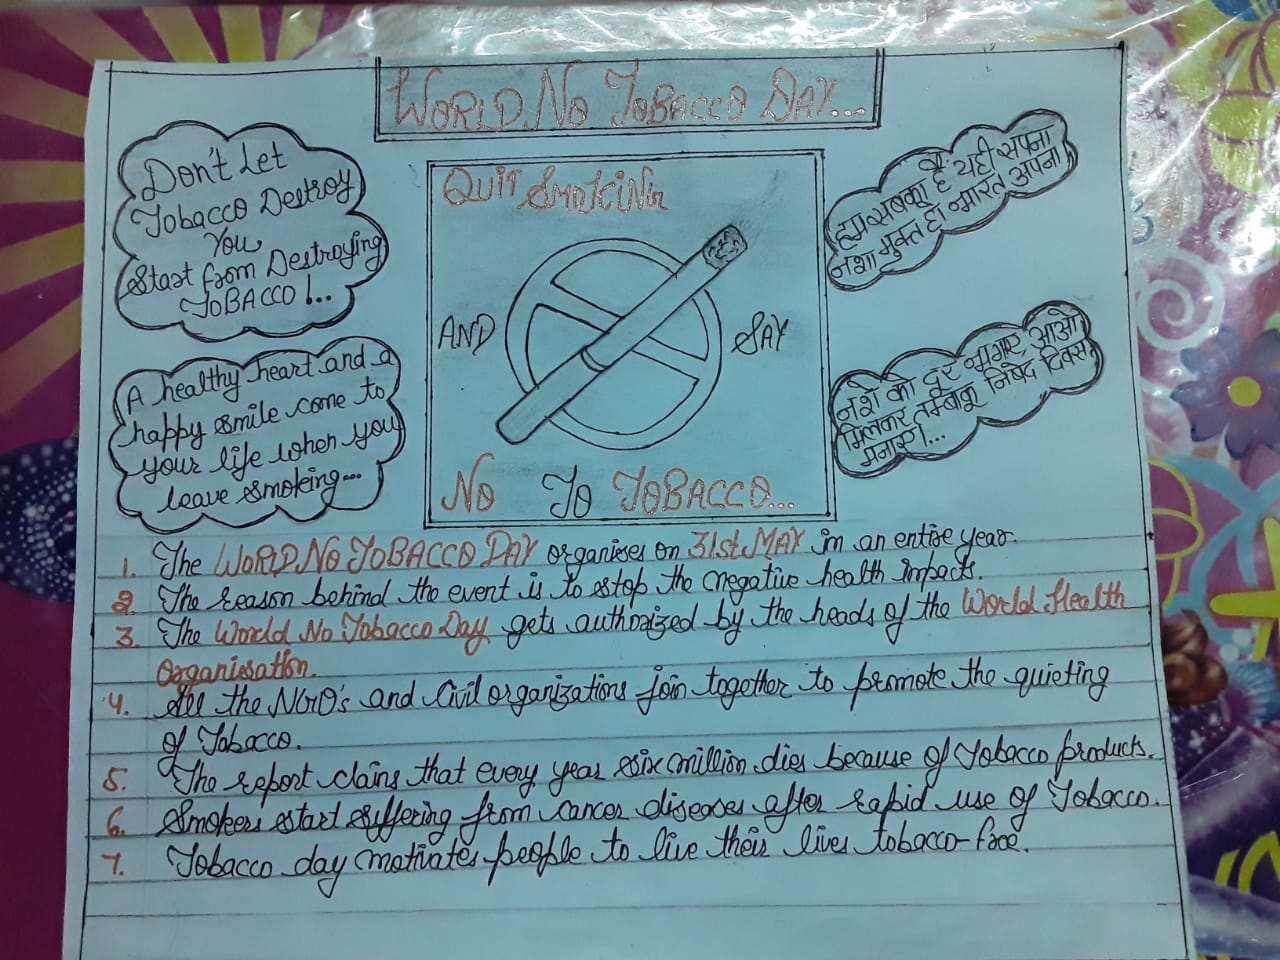 WORLD NO TOBACCO DAY...
Don't Let
Tobacco Destroy
You
Start from Destroying
TOBACCO!...
A healthy heart and a
happy smile come to
your life when you
leave smoking...
QUIT SMOKING
AND
SAY
NO TO TOBACCO...
हम सबका है यही सपना
नशा मुक्त हो भारत अपना
नशे को दूर भगाए आओ
मिलकर तम्बाकू निषेद दिवस
मनाए।...
1. The WORLD NO TOBACCO DAY organises on 31st MAY in an entire year.
2. The reason behind the event is to stop the negative health impacts.
3. The World No Tobacco Day gets authorized by the heads of the World Health
Organisation.
4. All the NGO's and Civil organizations join together to promote the quieting
of Tobacco.
5. The report claims that every year six million dies because of Tobacco products.
6. Smokers start suffering from cancer diseases after rapid use of Tobacco.
7. Tobacco day motivates people to live their lives tobacco-free.